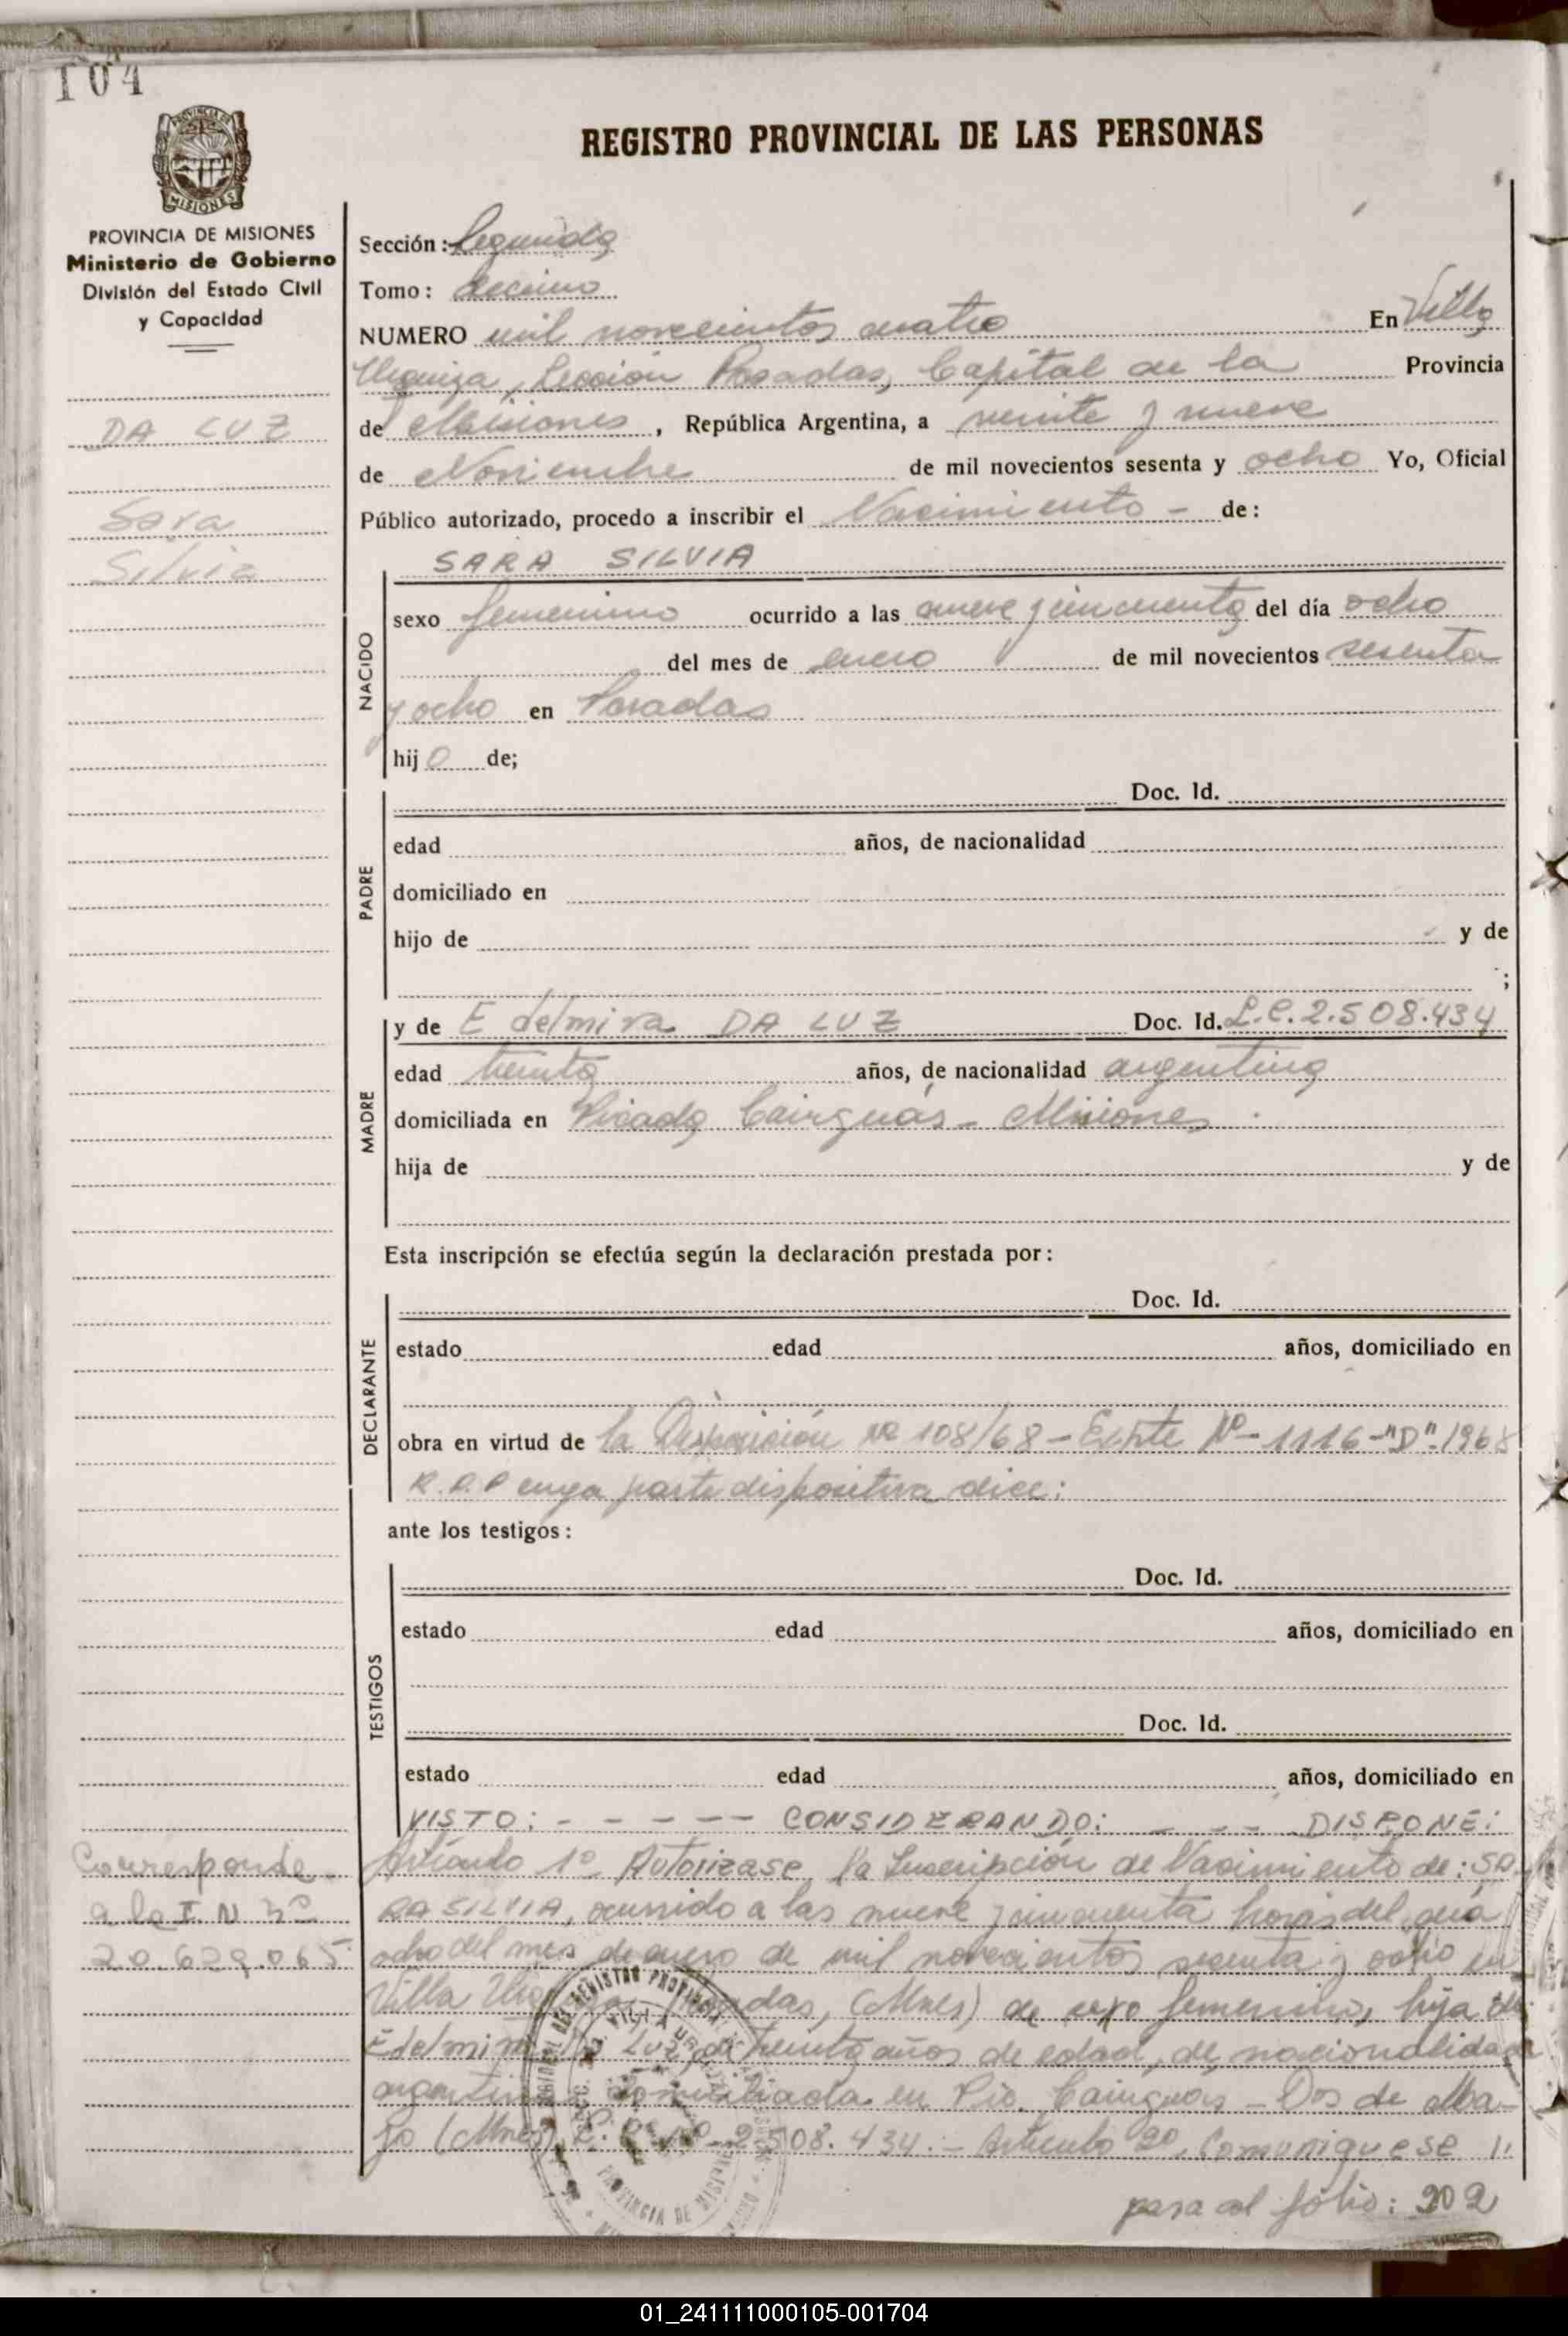 104
PROVINCIA DE
MISIONES
REGISTRO PROVINCIAL DE LAS PERSONAS
PROVINCIA DE MISIONES
Ministerio de Gobierno
División del Estado Civil
y Capacidad
DA LUZ
Sara
Silvia
Sección: Segunda
Tomo: decimo
NUMERO mil novecientos cuatro En Villa
Urquiza, Sección Posadas, Capital de la Provincia
de Misiones, República Argentina, a veinte y nueve
de Noviembre de mil novecientos sesenta y ocho Yo, Oficial
Público autorizado, procedo a inscribir el Nacimiento - de:
SARA SILVIA
NACIDO
sexo femenino ocurrido a las nueve y cincuenta del día ocho
del mes de enero de mil novecientos sesenta
y ocho en Posadas
hij o de;
PADRE
Doc. Id.
edad años, de nacionalidad
domiciliado en
hijo de y de
;
MADRE
y de Edelmira DA LUZ Doc. Id. L.C. 2.508.434
edad treinta años, de nacionalidad argentina
domiciliada en Picada Cainguás - Misiones
hija de y de
Esta inscripción se efectúa según la declaración prestada por:
DECLARANTE
Doc. Id.
estado edad años, domiciliado en
obra en virtud de la Disposición Nº 108/68 - Expte Nº - 1116 - "D" - 1968
R.P.P cuya parte dispositiva dice:
ante los testigos:
TESTIGOS
Doc. Id.
estado edad años, domiciliado en
Doc. Id.
estado edad años, domiciliado en
VISTO: - - - - - CONSIDERANDO: - - - DISPONE:
Artículo 1º Autorizase la Inscripción de Nacimiento de: SA
RA SILVIA, ocurrido a las nueve y cincuenta horas del día
ocho del mes de enero de mil novecientos sesenta y ocho en
Villa Posadas, (Mnes) de sexo femenino, hija de
Edelmira Da Luz, de treinta años de edad, de nacionalidad
argentina domiciliada en Pic. Cainguás - Dos de Ma-
yo (Mnes) 2.508.434. - Artículo 2º. Comuniquese
pasa al folio: 202
Corresponde
a la I. N Nº
20.629.065
01_241111000105-001704